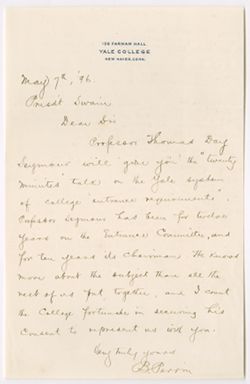 135 FARNAM HALL
YALE COLLEGE
NEW HAVEN, CONN.
May 7th, '96.
Presdt Swain
Dear Sir
Professor Thomas Day
Seymour will give you the "twenty
minutes" talk on the Yale system
of college entrance requirements.
Professor Seymour has been for twelve
years on the Entrance Committee, and
for ten years its Chairman. He knows
more about the subject than all the
rest of us put together, and I count
the College fortunate in securing his
consent to represent us with you.
Very truly yours
B. Perrin